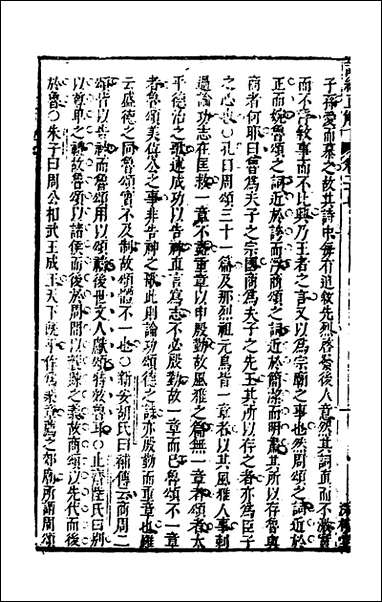 子孫愛而慕之故其詩中每有追敘先烈啓發後人意然其詞直而不激實
而不浮敘事而不比興乃王者之言又以爲宗廟之事也然周頌之詞近於
正而婉魯頌之詞近於誇而浮商頌之詞近於簡潔而明肅其所以存魯與
商者何耶曰魯爲夫子之宗國商爲夫子之先王其所以存之者亦爲臣子
之心也○孔曰周頌三十一篇及那烈祖元鳥皆一章者以其風雅人事刺
過論功志在匡救一章不盡重章以申殷勤故風雅之篇無一章者頌者太
平德洽之歌述成功以告神直言寫志不必殷勤故一章而已魯頌不一章
者魯頌美僖公之事非告神之歌此則論功頌德之詩亦殷勤而重章也雖
云盛德之同魯頌實不及制故頌體不一也○新安胡氏曰補傳云商周二
頌皆以告神而魯頌用以頌禱後世文人獻頌特效魯耳○止齋陳氏曰別
以尊卑之禮故魯頌以諸侯而後於周間以親疎之義故商頌以先代而後
於魯○朱子曰周公相武王成王天下既平作爲樂章薦之郊廟所謂周頌